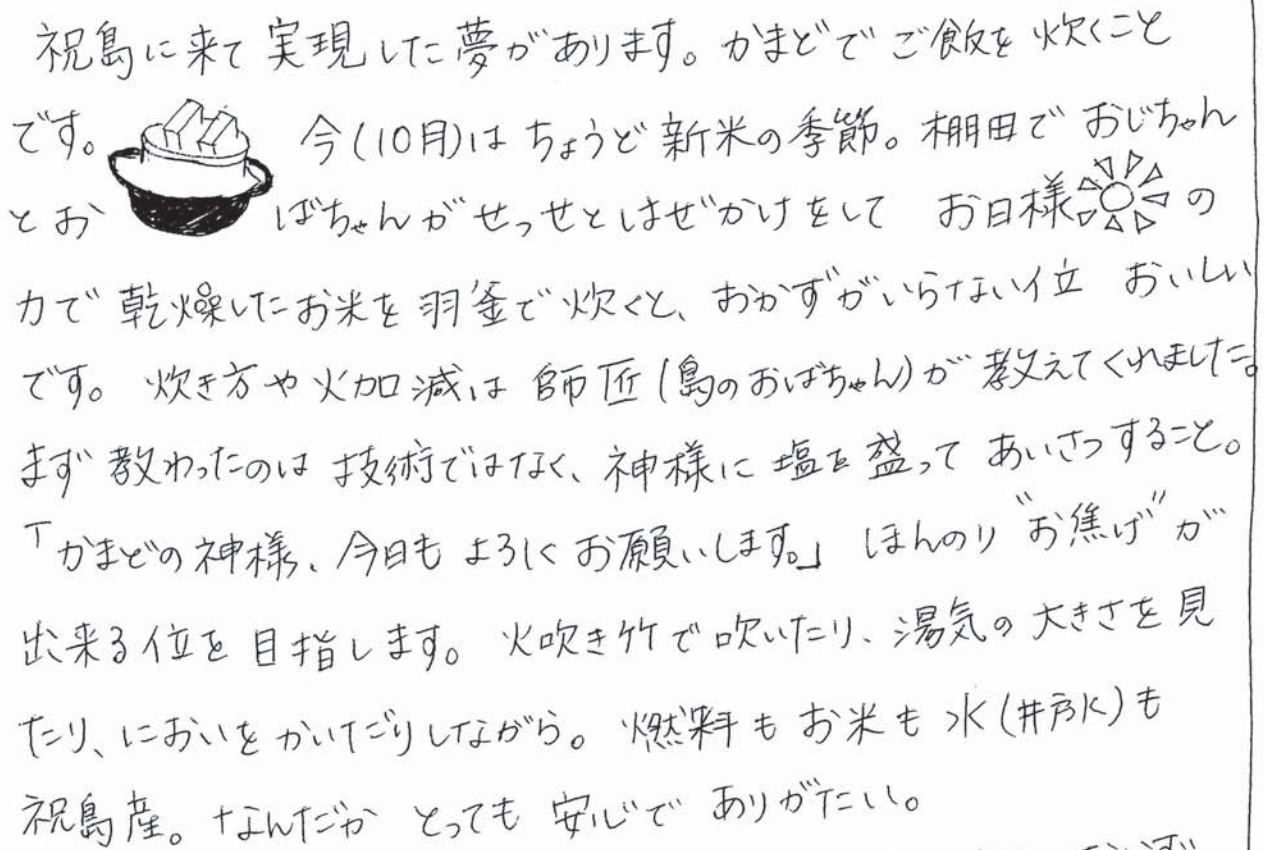 祝島に来て実現した夢があります。かまどでご飯を炊くこと
です。今(10月)はちょうど新米の季節。棚田でおじちゃん
とおばちゃんがせっせとはぜかけをして お日様の
力で乾燥したお米を羽釜で炊くと、おかずがいらない位 おいしい
です。炊き方や火加減は師匠(島のおばちゃん)が教えてくれました。
まず教わったのは技術ではなく、神様に塩を盛ってあいさつすること。
「かまどの神様、今日もよろしくお願いします。」ほんのり"お焦げ"が
出来る位を目指します。火吹き竹で吹いたり、湯気の大きさを見
たり、においをかいだりしながら。燃料もお米も水(井戸水)も
祝島産。なんだかとっても安心でありがたい。